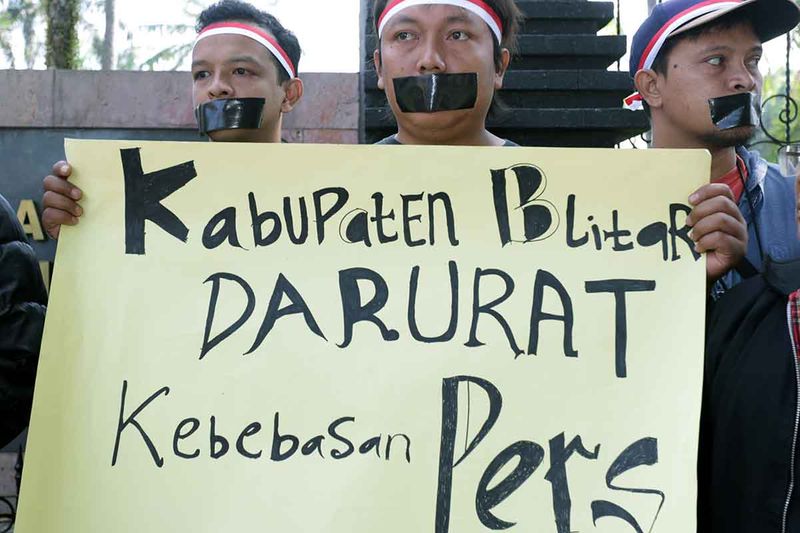 Kabupaten Blitar
DARURAT
Kebebasan Pers